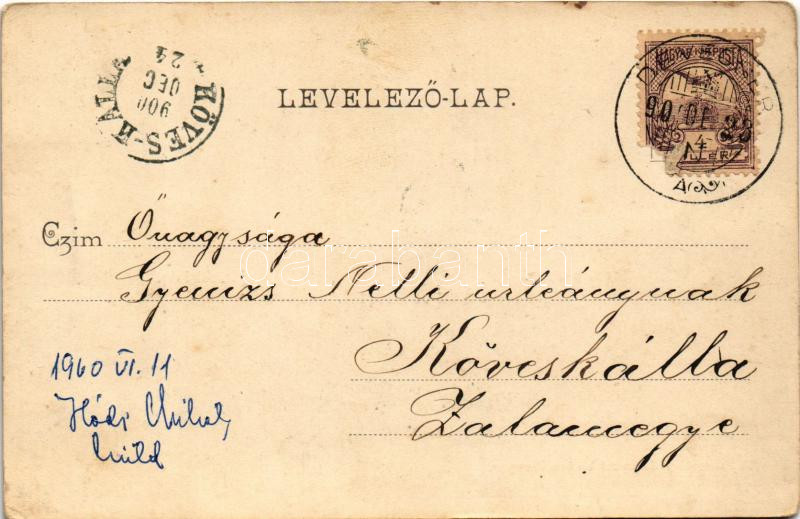 KÖVES-KÁLLA
900
DEC
24
LEVELEZŐ-LAP.
MAGYAR KIR. POSTA
23
4
Czim Önagysága
Gyenizs Nelli urleánynak
Köveskálla
Zalamegye
1960 VI. 11
Hódi Mihály
küld
darabanth